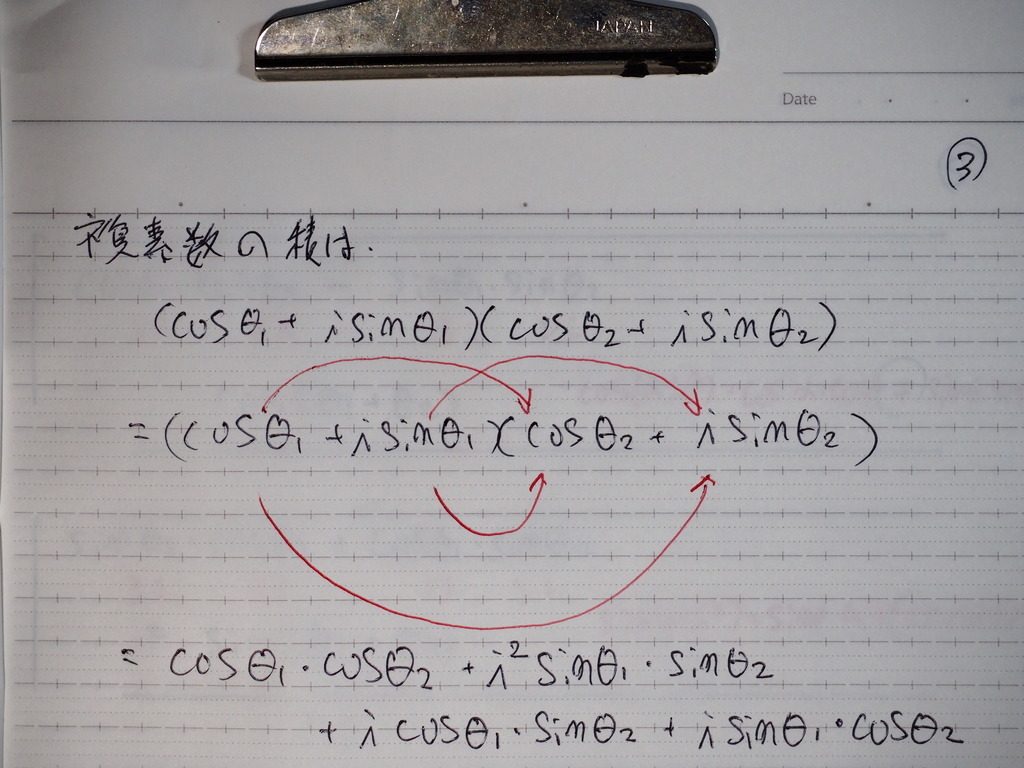 JAPAN
Date
③
複素数の積は.
(cosθ₁ + i sinθ₁)(cosθ₂ + i sinθ₂)
= (cosθ₁ + i sinθ₁)(cosθ₂ + i sinθ₂)
= cosθ₁・cosθ₂ + i² sinθ₁・sinθ₂
+ i cosθ₁・sinθ₂ + i sinθ₁・cosθ₂